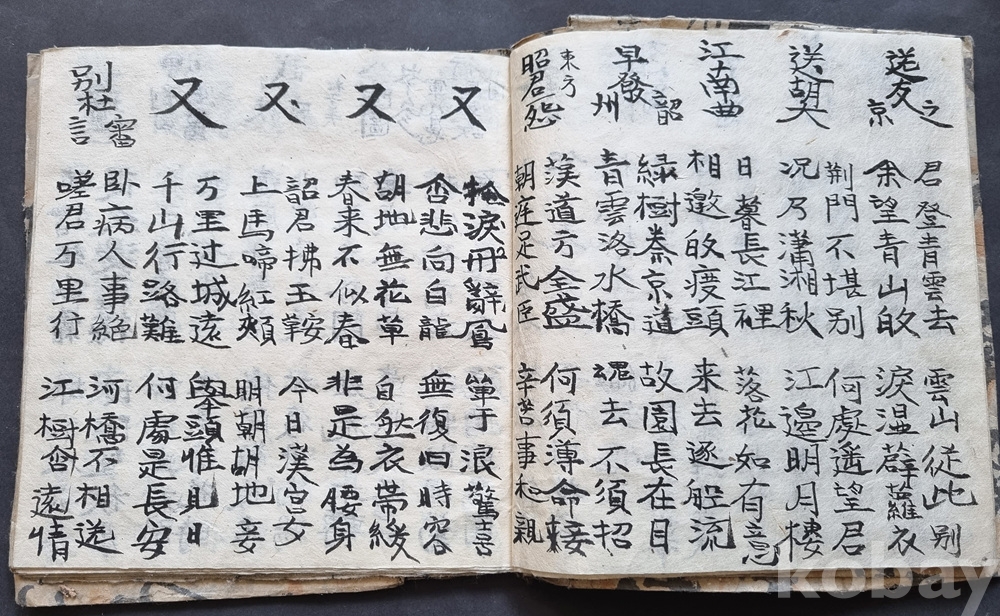 送友之京
君登青雲去
余望青山皈
雲山從此別
淚温薜蘿衣
送胡大
荆門不堪别
况乃瀟湘秋
何處遥望君
江邉明月樓
江南曲
日暮長江裡
相邀皈渡頭
落花如有意
来去逐船流
早發韶州
緑樹秦京道
青雲洛水橋
故園長在目
魂去不須招
東方昭君怨
漢道方全盛
朝廷足武臣
何須薄命妾
辛苦事和親
又
掩淚丹辭鳳
含悲向白龍
單于浪驚喜
無復旧時容
又
胡地無花草
春来不似春
自然衣帶緩
非是為腰身
又
韶君拂玉鞍
上馬啼紅頰
今日漢宮女
明朝胡地妾
又
万里过城遠
千山行路難
舉頭惟見日
何處是長安
别杜審言
卧病人事絶
嗟君万里行
河橋不相送
江樹含遠情
kobay